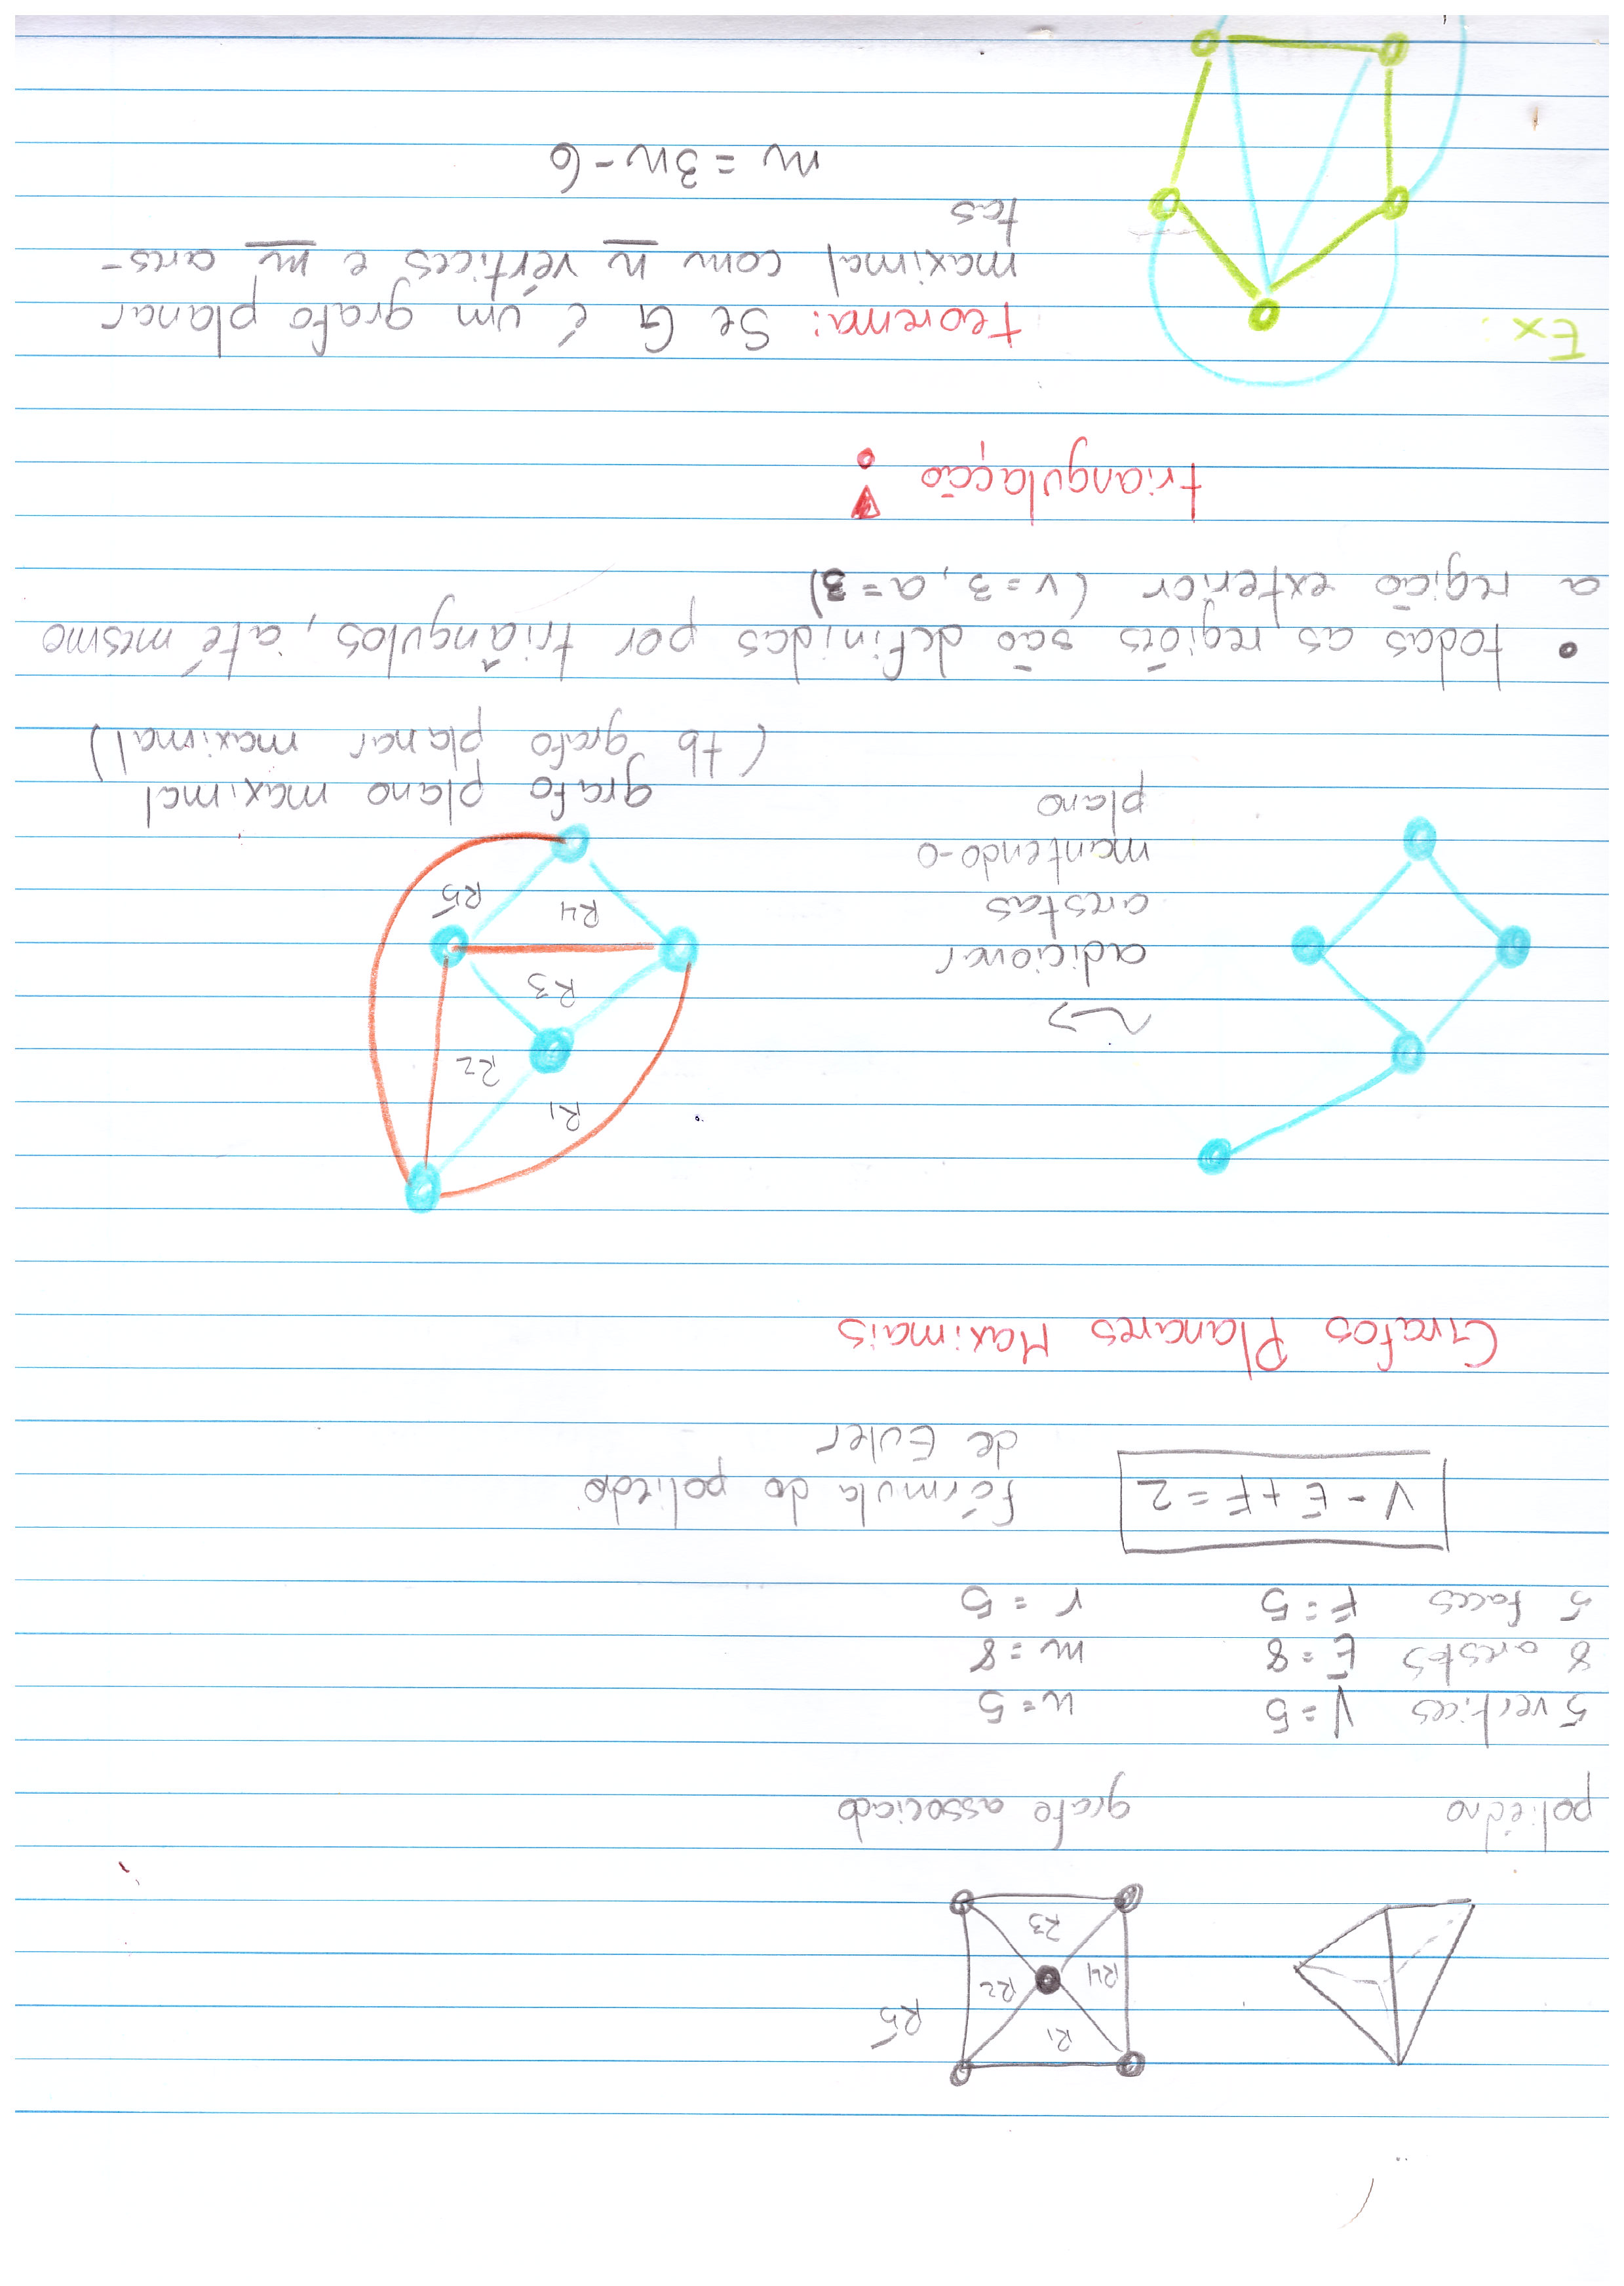 R1
R5
R4
R2
R3
poliédro
grafo associado
5 vertices V = 5 n = 5
8 arestas E = 8 m = 8
5 faces F = 5 r = 5
V - E + F = 2 fórmula do poliedo
de Euler
Grafos Planares Maximais
R1
R2
R3
adicionar
R4
R5
arestas
mantendo-o
plano
grafo plano maximal
(tb grafo planar maximal)
• todas as regiões são definidas por triângulos, até mesmo
a região exterior (v = 3, a = 3)
triangulação !
Ex:
teorema: Se G é um grafo planar
maximal com n vértices e m ares-
tas
m = 3n - 6